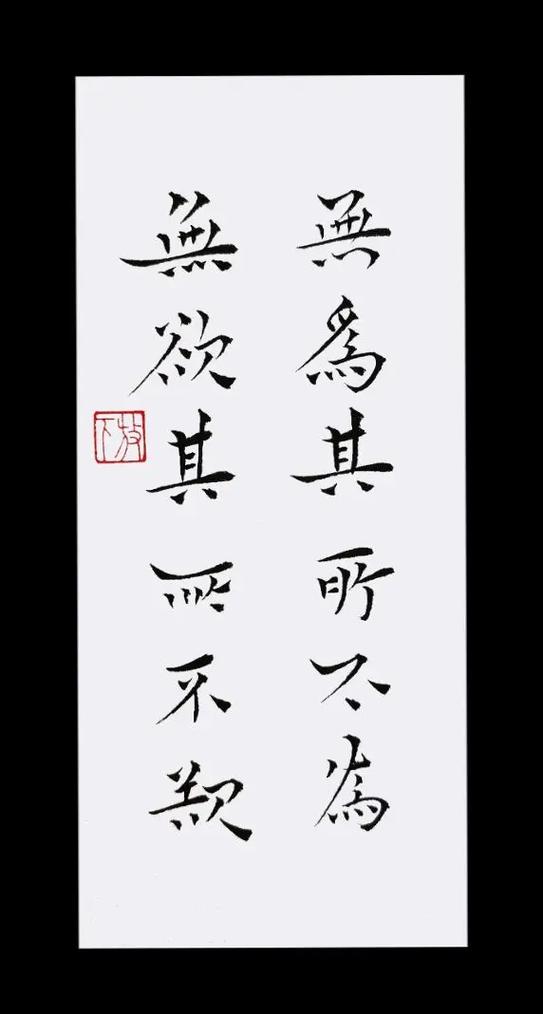 無為其所不為
無欲其所不欲
放下